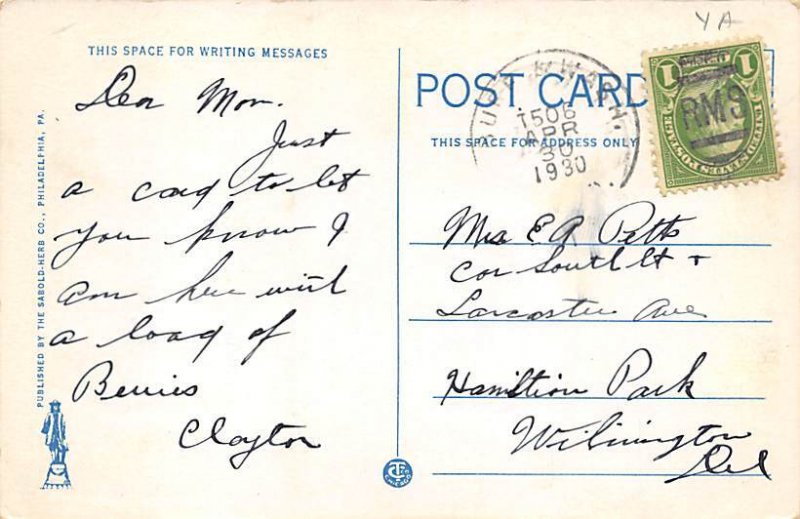 YA
THIS SPACE FOR WRITING MESSAGES
Dear Mom.
Just
a card to let
you know I
am here with
a load of
Berries
Clayton
PUBLISHED BY THE SABOLD-HERB CO., PHILADELPHIA, PA.
POST CARD
THIS SPACE FOR ADDRESS ONLY
& WASH.
T506
APR
30
1930
1
1
RMS
Mrs E A Petts
Cor South St +
Lancaster Ave
Hamiltion Park
Wilimington
Del
CHICAGO